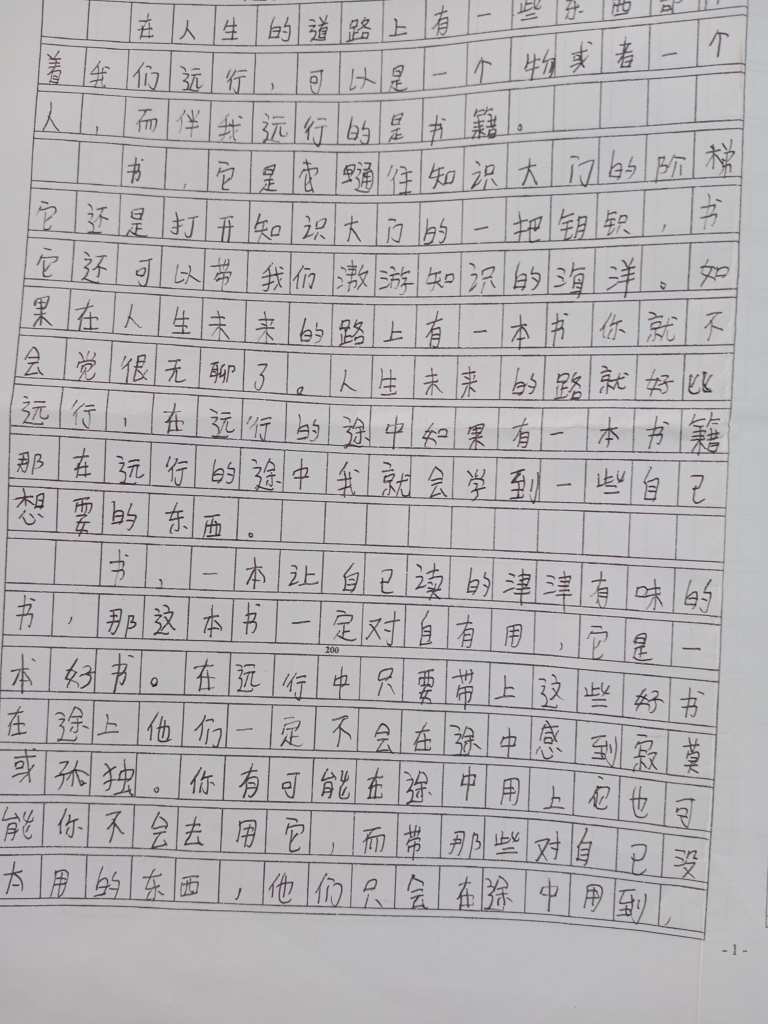 在人生的道路上有一些东西都
着我们远行，可以是一个物或者一个
人，而伴我远行的是书籍。
书，它是通往知识大门的阶梯
它还是打开知识大门的一把钥织，书
它还可以带我们激游知识的海洋。如
果在人生未来的路上有一本书你就不
会觉很无聊了。人生未来的路就好比
远行，在远行的途中如果有一本书籍
那在远行的途中我就会学到一些自己
想要的东西。
书，一本让自己读的津津有味的
书，那这本书一定对自有用，它是一
200
本好书。在远行中只要带上这些好书
在途上他们一定不会在途中感到寂莫
或孤独。你有可能在途中用上它也可
能你不会去用它，而带那些对自己没
大用的东西，他们只会在途中用到，
- 1 -